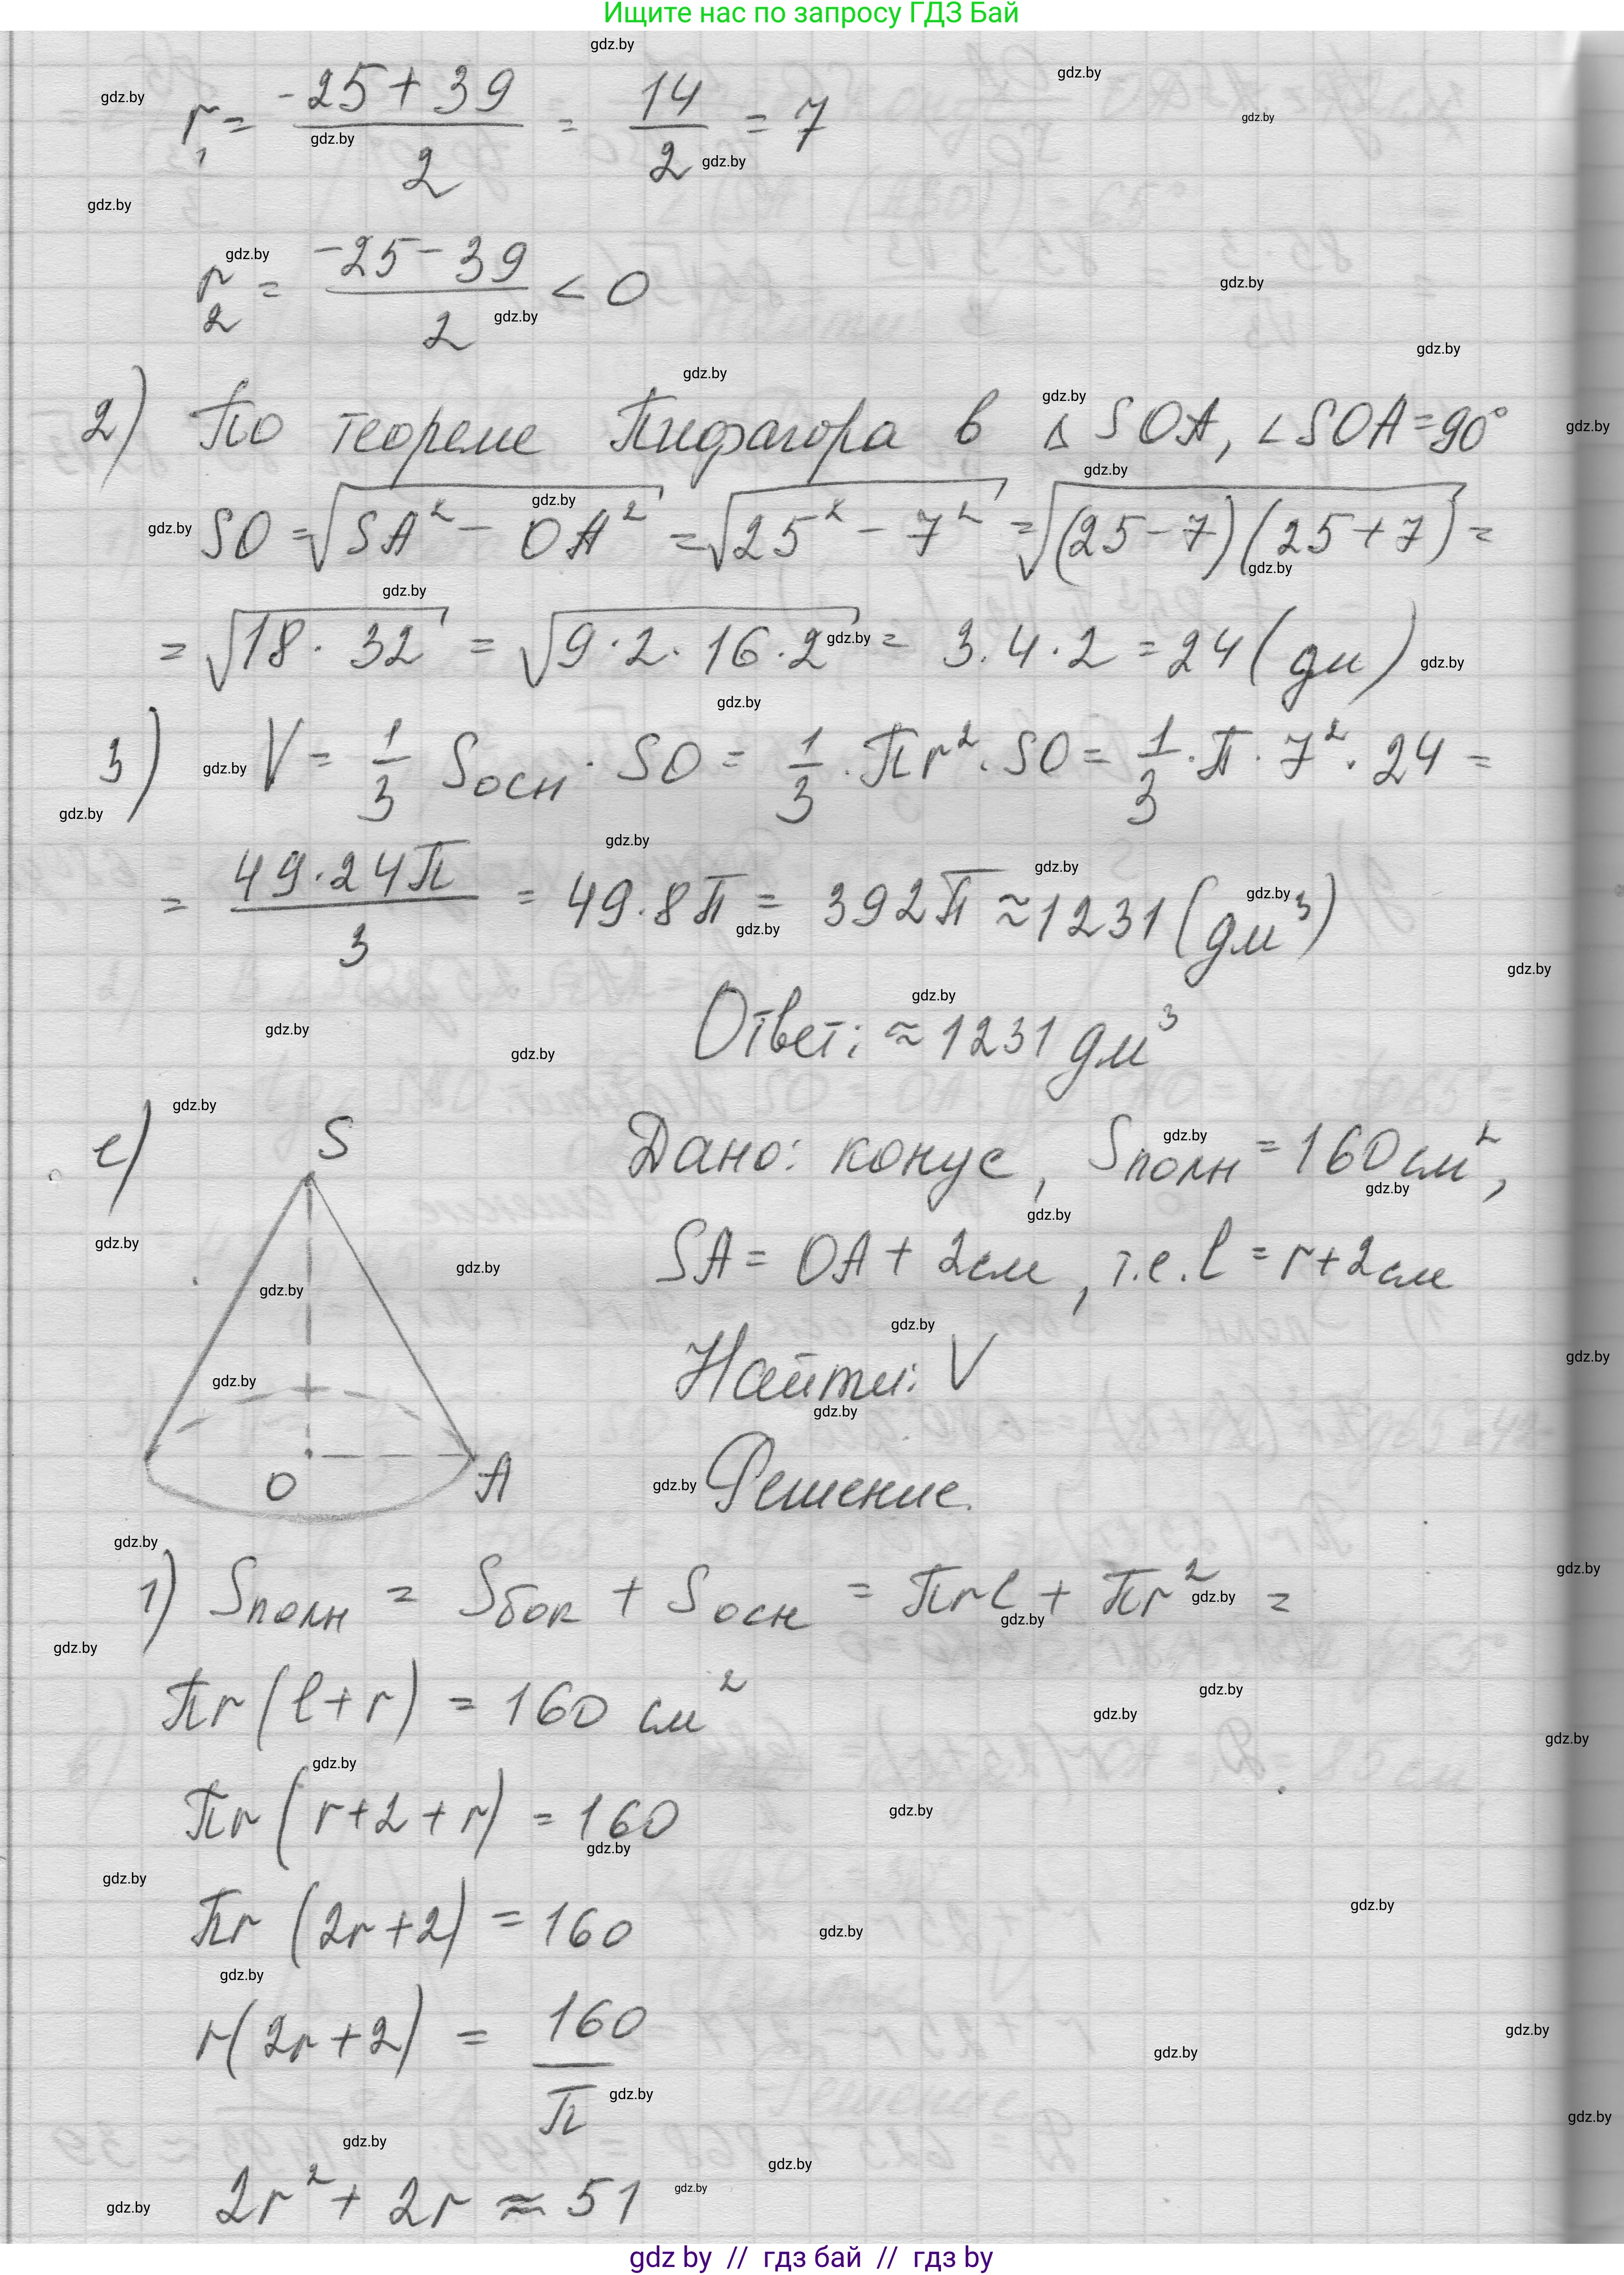 Ищите нас по запросу ГДЗ Бай
r₁ = (-25 + 39)/2 = 14/2 = 7
r₂ = (-25 - 39)/2 < 0
2) По теореме Пифагора в △ SOA, ∠SOA = 90°
SO = √(SA² - OA²) = √(25² - 7²) = √((25-7)(25+7)) =
= √(18 · 32) = √(9 · 2 · 16 · 2) = 3 · 4 · 2 = 24 (дм)
3) V = 1/3 Sосн · SO = 1/3 · πr² · SO = 1/3 · π · 7² · 24 =
= (49 · 24π)/3 = 49 · 8π = 392π ≈ 1231 (дм³)
Ответ: ≈ 1231 дм³
е) S O A
Дано: конус, Sполн = 160 см²,
SA = OA + 2см, т.е. l = r + 2см
Найти: V
Решение.
1) Sполн = Sбок + Sосн = πrl + πr² =
πr(l + r) = 160 см²
πr(r + 2 + r) = 160
πr(2r + 2) = 160
r(2r + 2) = 160/π
2r² + 2r ≈ 51
gdz by // гдз бай // гдз by